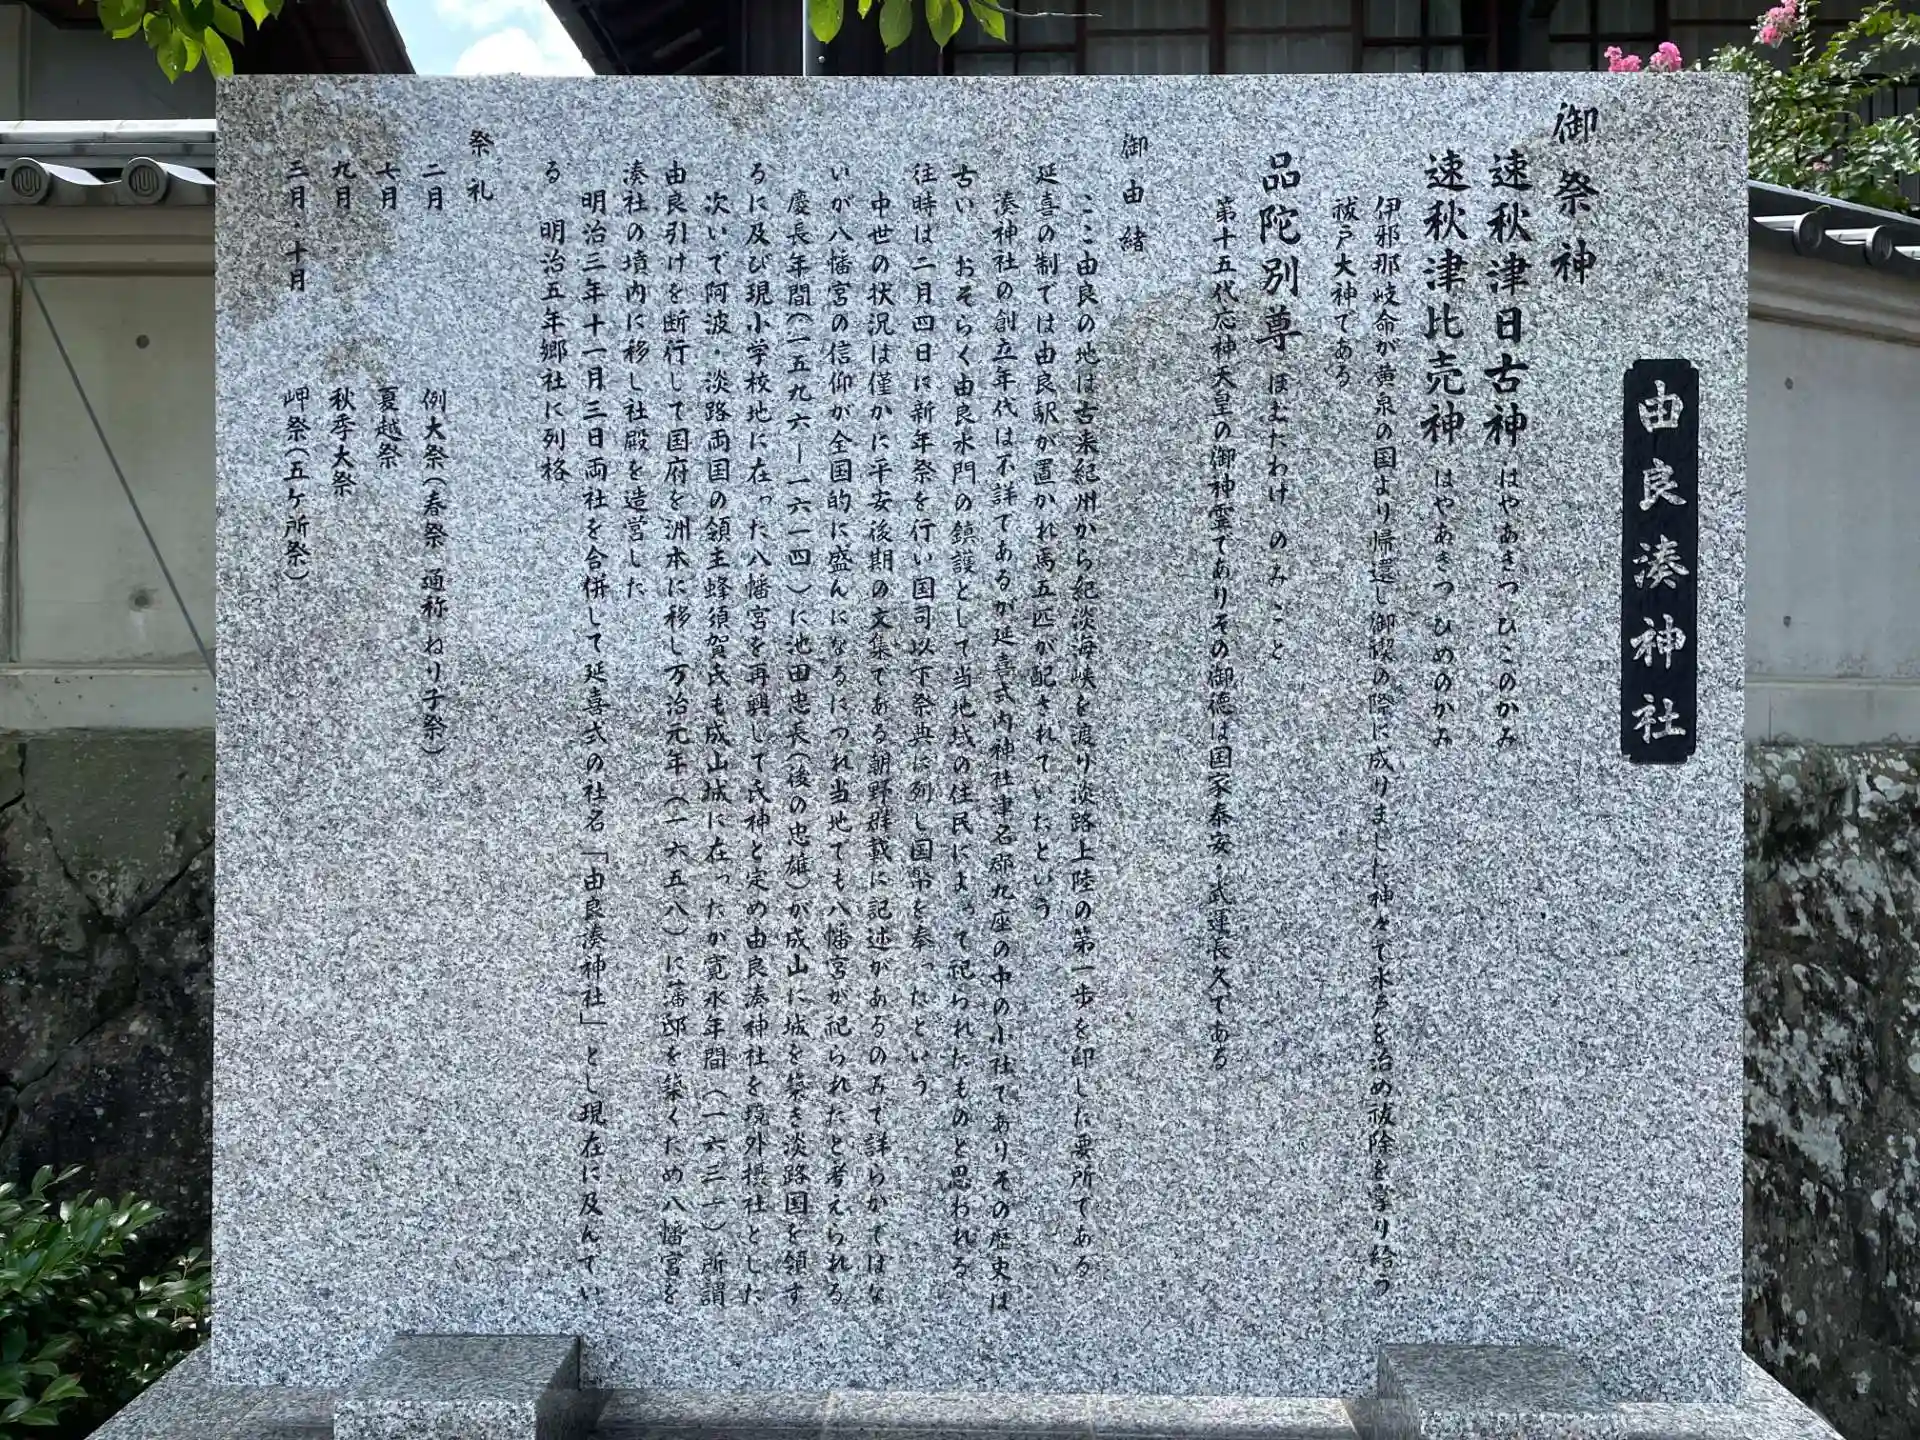 由良湊神社
御祭神
速秋津日古神 はやあきつ ひこのかみ
速秋津比売神 はやあきつ ひめのかみ
伊邪那岐命が黄泉の国より帰還し御禊の際に成りました神々で水戸を治め祓除を掌り給う
祓戸大神である
品陀別尊 ほむたわけ のみこと
第十五代応神天皇の御神霊でありその御徳は国家泰安・武運長久である
御由緒
ここ由良の地は古来紀州から紀淡海峡を渡り淡路上陸の第一歩を印した要所である
延喜の制では由良駅が置かれ馬五匹が配されていたという
湊神社の創立年代は不詳であるが延喜式内神社津名郡九座の中の小社でありその歴史は
古い おそらく由良水門の鎮護として当地域の住民によって祀られたものと思われる
往時は二月四日に新年祭を行い国司以下祭典に列し国幣を奉ったという
中世の状況は僅かに平安後期の文集である朝野群載に記述があるのみで詳らかではな
いが八幡宮の信仰が全国的に盛んになるにつれ当地でも八幡宮が祀られたと考えられる
慶長年間(一五九六ー一六一四)に池田忠長(後の忠雄)が成山に城を築き淡路国を領す
るに及び現小学校地に在った八幡宮を再興して氏神と定め由良湊神社を境外摂社とした
次いで阿波・淡路両国の領主蜂須賀氏も成山城に在ったが寛永年間(一六三一)所謂
由良引けを断行して国府を洲本に移し万治元年(一六五八)に藩邸を築くため八幡宮を
湊社の境内に移し社殿を造営した
明治三年十一月三日両社を合併して延喜式の社名「由良湊神社」とし現在に及んでい
る 明治五年郷社に列格
祭礼
二月 例大祭(春祭 通称 ねり子祭)
七月 夏越祭
九月 秋季大祭
三月・十月 岬祭(五ヶ所祭)